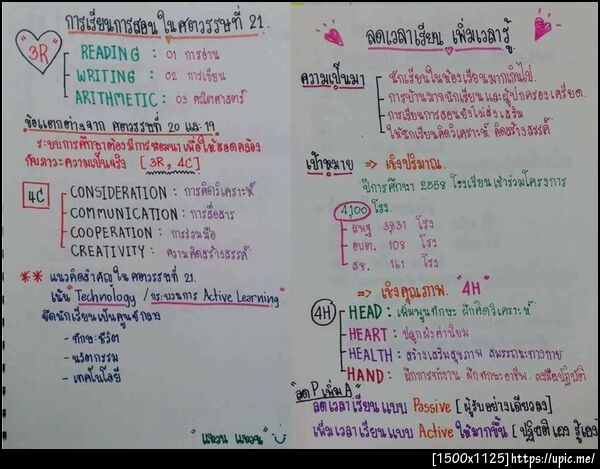 การเรียนการสอนในศตวรรษที่ 21.
3R
READING : 01 การอ่าน
WRITING : 02 การเขียน
ARITHMETIC : 03 คณิตศาสตร์
ข้อแตกต่างจาก ศตวรรษที่ 20 และ 19
ระบบการศึกษาต้องมีการพัฒนาเพื่อให้สอดคล้อง
กับภาวะความเป็นจริง [3R, 4C]
4C
CONSIDERATION : การคิดวิเคราะห์
COMMUNICATION : การสื่อสาร
COOPERATION : การร่วมมือ
CREATIVITY : ความคิดสร้างสรรค์
** แนวคิดสำคัญในศตวรรษที่ 21.
เน้น "Technology / กระบวนการ Active Learning"
ยึดนักเรียนเป็นศูนย์กลาง
- ทักษะชีวิต
- นวัตกรรม
- เทคโนโลยี
ลดเวลาเรียน เพิ่มเวลารู้
ความเป็นมา
นักเรียนในห้องเรียนมากเกินไป.
การบ้านมากนักเรียนและผู้ปกครองเครียด.
การเรียนการสอนยังไม่ส่งเสริม
ให้นักเรียนคิดวิเคราะห์ คิดสร้างสรรค์
เป้าหมาย ⇒ เชิงปริมาณ.
ปีการศึกษา 2558 โรงเรียนเข้าร่วมโครงการ
4,100 โรง.
สพฐ 3831 โรง
อปท. 108 โรง
สช. 161 โรง
⇒ เชิงคุณภาพ "4H"
4H
HEAD : เพิ่มพูนทักษะ ฝึกคิดวิเคราะห์
HEART : ปลูกฝังค่านิยม
HEALTH : สร้างเสริมสุขภาพ สมรรถนะทางกาย
HAND : ฝึกการทำงาน ฝึกทักษะอาชีพ. ลงมือปฏิบัติ
"ลด P เพิ่ม A"
ลดเวลาเรียนแบบ Passive [ผู้รับอย่างเดียวลง]
เพิ่มเวลาเรียนแบบ Active ให้มากขึ้น (ปฏิบัติเอง รู้เอง)
[1500x1125]https://upic.me/